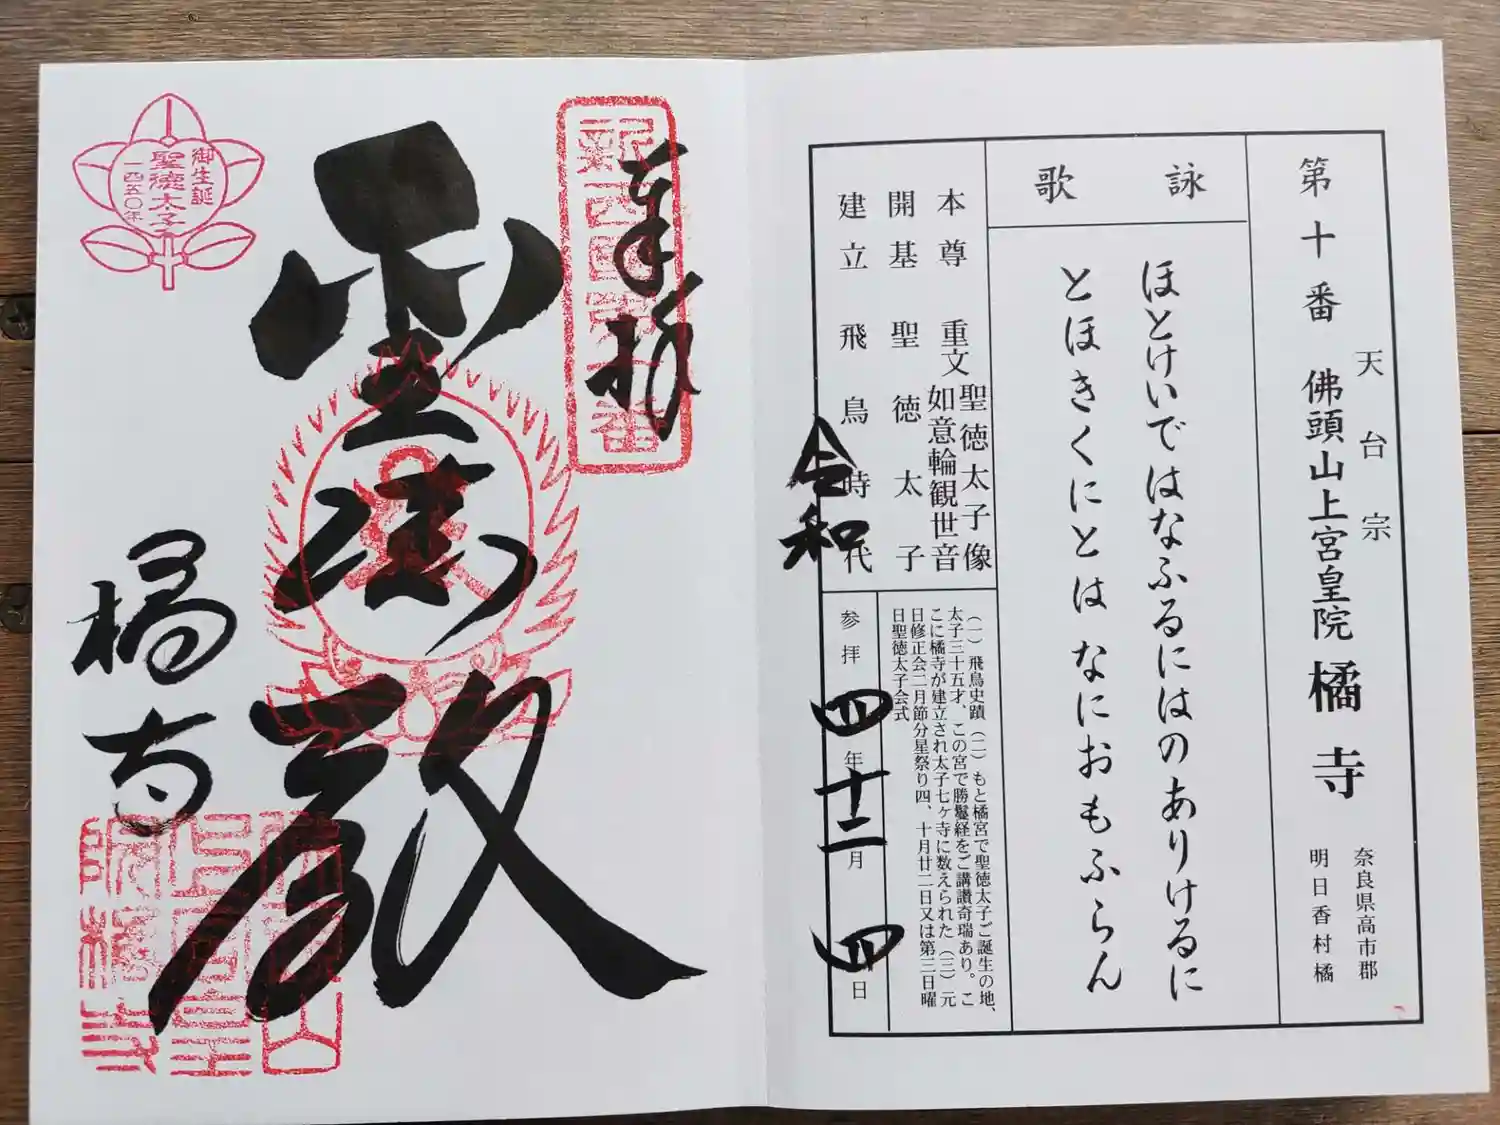 第十番 佛頭山上宮皇院 橘寺
天台宗
奈良県高市郡
明日香村橘
詠歌
ほとけいではなふるにはのありけるに
とほきくにとはなにおもふらん
本尊 重文 聖徳太子像
如意輪観世音
開基 聖徳太子
建立 飛鳥時代
(一)飛鳥史蹟(二)もと橘宮で聖徳太子ご誕生の地、
太子三十五才、この宮で勝鬘経をご講讃奇瑞あり。こ
こに橘寺が建立され太子七ヶ寺に数えられた(三)元
日修正会二月節分星祭り四、十月廿二日又は第三日曜
日聖徳太子会式
令和
参拝四年十二月四日
新西国第十番
奉拝
聖徳殿
橘寺
御生誕
聖徳太子
一四五〇年